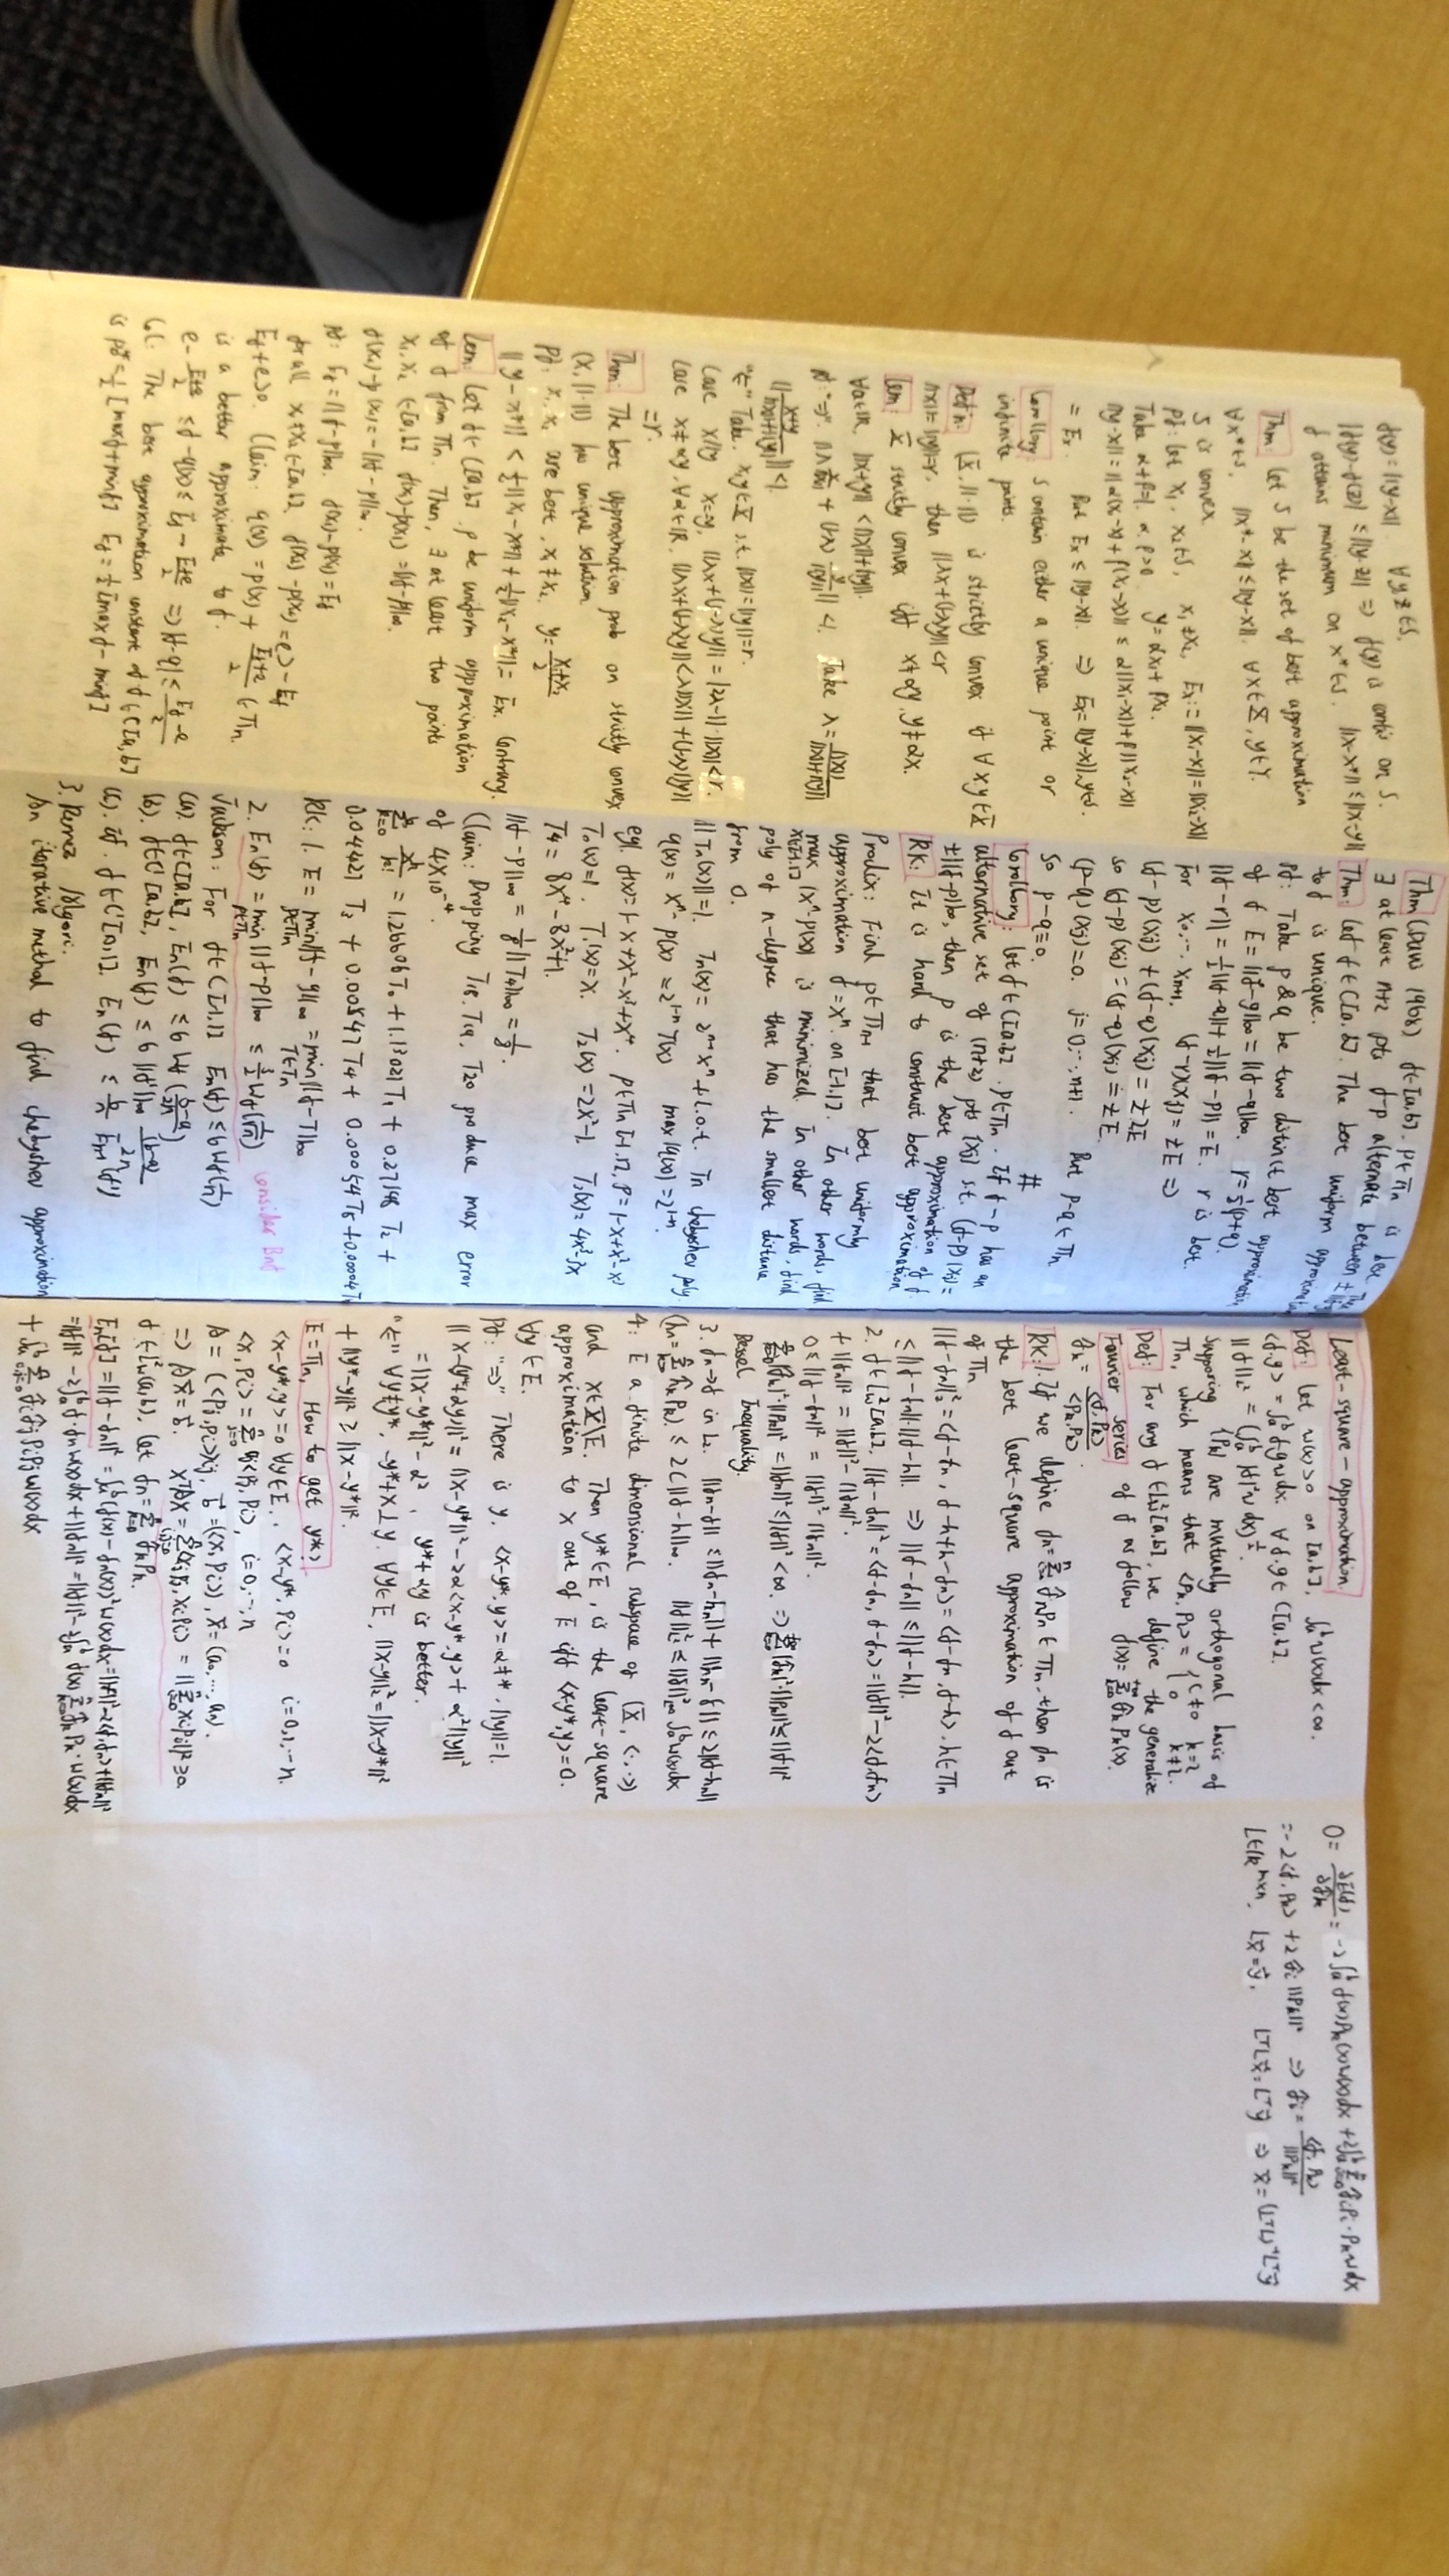 f(y)=||y-x|| ∀y,z∈S.
|f(y)-f(z)| ≤||y-z|| => f(y) is contis on S.
f attains minimum on x*∈S. ||x-x*|| ≤||x-y||
Thm: Let S be the set of best approximation
∀x*∈S, ||x*-x|| ≤||y-x||. ∀x∈X, y∈Y.
S is convex.
Pf: Let x₁, x₂∈S, x₁≠x₂, Ex:=||x₁-x||=||x₂-x||
Take α+β=1. α,β>0 y=αx₁+βx₂.
||y-x||=||α(x₁-x)+β(x₂-x)|| ≤ α||x₁-x||+β||x₂-x||
= Ex. But Ex ≤||y-x||. => Ex=||y-x||, y∈S.
Corollory S contain either a unique point or
infinite points.
Defn. (X, ||·||) is strictly convex if ∀x,y∈X
||x||=||y||=r, then ||λx+(1-λ)y||<r
Lem: X strictly convex iff x≠αy, y≠αx.
∀α∈IR, ||x+y|| <||x||+||y||.
Pf: "=>". ||λ x/||x|| + (1-λ) y/||y|| || <1. Take λ= ||x||/(||x||+||y||)
||(x+y)/(||x||+||y||)||<1.
"<=" Take. x,y∈X s.t. ||x||=||y||=r.
Case x//y x=-y, ||λx+(1-λ)y||=|2λ-1|·||x||<r.
Case x≠αy, ∀α∈IR, ||λx+(1-λ)y||<λ||x||+(1-λ)||y||
=r.
Thm: The best approximation prob on strictly convex
(X, ||·||) has unique solution
Pf: x₁, x₂ are best, x₁≠x₂, y=(x₁+x₂)/2
||y-x*|| < ½||x₁-x*||+½||x₂-x*||= Ex. Contrary.
Lem: Let f∈C[a,b] p be uniform approximation
of f from Πn. Then, ∃ at least two points
x₁,x₂ ∈[a,b] f(x₁)-p(x₁)=||f-p||∞.
f(x₂)-p(x₂)=-||f-p||∞.
Pf: Ef=||f-p||∞. f(x₁)-p(x₁)=Ef
for all x₂≠x₁∈[a,b]. f(x₂)-p(x₂)=e>-Ef
Ef+e>0. Claim: q(x)=p(x)+ (Ef+e)/2 ∈Πn.
is a better approximate to f.
e- (E+e)/2 ≤f-q(x)≤ Ef- (E+e)/2 =>|f-q|≤ (Ef-e)/2
Col: The best approximation constant of f∈C[a,b]
is pf*=½[maxf+minf] Ef=½[maxf-minf]
Thm ( 1968) f∈[a,b]. p∈Πn is best
∃ at least n+2 pts f-p alternate between
Thm: Let f∈C[a,b]. The best uniform approximation
to f is unique.
Pf: Take p&q be two distinct best approximation
of f E=||f-g||∞=||f-q||∞. r=½(p+q).
||f-r||=½||f-q||+½||f-p||=E. r is best.
For x₀,···x_{n+1}, (f-r)(xj)=±E =>
(f-p)(xj)+(f-q)(xj)=±2E
so (f-p)(xj)=(f-q)(xj)=±E.
(p-q)(xj)=0. j=0,···,n+1. But p-q∈Πn
so p-q≡0. #
Corollory: Let f∈C[a,b]. p∈Πn. If f-p has an
alternative set of (n+2) pts {xj} s.t. (f-p)(xj)=
±||f-p||∞, then p is the best approximation of f.
RK: It is hard to construct best approximation
: Find p∈Πn-1 that best uniformly
approximation f=xⁿ on [-1,1]. In other words, find
max x∈[-1,1] |xⁿ-p(x)| is minimized. In other words, find
poly of n-degree that has the smallest distance
from 0.
||Tn(x)||=1. Tn(x)=2ⁿ⁻¹xⁿ+l.o.t. Tn chebyshev poly.
q(x)=xⁿ-p(x)=2¹⁻ⁿT(x) max|q(x)|=2¹⁻ⁿ.
eg1. f(x)=1-x+x²-x³+x⁴. p∈Πn[-1,1], p=1-x+x²-x³
T₀(x)=1. T₁(x)=x. T₂(x)=2x²-1. T₃(x)=4x³-3x
T₄=8x⁴-8x²+1.
||f-p||∞=⅛||T₄||∞=⅛.
Claim: Dropping T18, T19, T20 produce max error
of 4×10⁻⁴.
Σ_{k=0} xᵏ/k! =1.26606T₀+1.13021T₁+0.27148T₂+
0.04427 T₃+0.00547T₄+0.00054T₅+0.00004T₆
RK: 1. E=min_{p∈Πn}||f-g||∞=min_{T∈Tn}||f-T||∞
2. En(f)=min_{p∈Πn}||f-p||∞ ≤ 3/2 Wf(1/√n) consider Bnf
Jackson: For f∈C[-1,1] En(f)≤6Wf(1/n)
(a). f∈C[a,b], En(f)≤6Wf((b-a)/2n)
(b). f∈C'[a,b], En(f)≤6||f'||∞ (b-a)/2n
(c). If f∈C'[-1,1], En(f)≤ 6/n En-1(f')
3. Remez Algori.
An iterative method to find chebyshev approximation
Least-square-approximation.
Def: Let w(x)>0 on [a,b], ∫ₐᵇw(x)dx<∞.
<f,g>=∫ₐᵇfgwdx. ∀f,g∈C[a,b].
||f||L²=(∫ₐᵇ|f|²w dx)^½.
Supposing {Pk} are mutually orthogonal basis of
Πn, which means that <Pk,Pl>={C≠0 k=l
0 k≠l.
Def: For any f∈L²w[a,b], we define the generalize
Fourier series of f as follow f(x)=Σ_{k=0}^{+∞} f̂k Pk(x).
f̂k= <f,Pk>/<Pk,Pk>.
RK: 1. If we define fn=Σⁿ f̂nPn∈Πn, then fn is
the best least-square approximation of f out
of Πn
||f-fn||₂²=<f-fn, f-h+h-fn>=<f-fn,f-h>. h∈Πn
≤||f-fn||·||f-h||. => ||f-fn||≤||f-h||.
2. f∈L²w[a,b]. ||f-fn||²=<f-fn, f-fn>=||f||²-2<f,fn>
+||fn||²=||f||²-||fn||².
0≤||f-fn||²=||f||²-||fn||².
Σ_{k=0}ⁿ|f̂k|²·||Pk||²=||fn||²≤||f||²<∞. =>Σ_{k=0}^∞|f̂k|²·||Pk||²≤||f||²
Bessel Inequality.
3. fn→f in L₂. ||fn-f||≤||fn-hn||+||hn-f||≤2||f-hn||
(hn=Σ_{k=0}ⁿ ĥkPk). ≤2C||f-h||∞. ||f||²L²≤||f||²L∞∫ₐᵇw(x)dx
4: E a finite dimensional subspace of (X, <·,·>)
and x∈X\E. Then y*∈E, is the least-square
approximation to x out of E iff <x-y*,y>=0.
∀y∈E.
Pf: "=>" There is y, <x-y*,y>=α≠*. ||y||=1.
||x-(y*+αy)||²=||x-y*||²-2α<x-y*,y>+α²||y||²
=||x-y*||²-α², y*+αy is better.
"<=" ∀y≠y*, -y*+x⊥y. ∀y∈E, ||x-y||₂²=||x-y*||²
+||y*-y||²≥||x-y*||².
E=Πn, How to get y*?
<x-y*,y>=0 ∀y∈E. <x-y*,Pi>=0 i=0,1,··n.
<x,Pi>=Σ_{j=0}ⁿ aj<Pj,Pi>, i=0,···,n
A=(<Pj,Pi>)ij, b⃗=(<x,Pi>), x⃗=(a₀,...,an).
=> Ax⃗=b⃗. xᵀAx=Σ_{i,j=0}ⁿ<xjPj,xiPi>=||Σ_{i=0}ⁿxiPi||²≥0.
f∈L²w(a,b). Let fn=Σ_{k=0}ⁿ f̂kPk.
En[f]=||f-fn||²=∫ₐᵇ(f(x)-fn(x))²w(x)dx=||f||²-2<f,fn>+||fn||²
=||f||²-2∫ₐᵇf·fnw(x)dx+||fn||²=||f||²-2∫ₐᵇf(x)Σ_{k=0}ⁿf̂kPk·w(x)dx
+∫ₐᵇΣ_{i,j=0}ⁿf̂if̂jPiPjw(x)dx
0= ∂E(f)/∂f̂k=-2∫ₐᵇf(x)Pk(x)w(x)dx+2∫ₐᵇΣ_{i=0}ⁿf̂iPi·Pkwdx
=-2<f,Pk>+2f̂i||Pk||² => f̂i= <f,Pk>/||Pk||²
L∈IRᵐˣⁿ, Lx⃗=y⃗, LᵀLx⃗=Lᵀy⃗ => x⃗=(LᵀL)⁻¹Lᵀy⃗